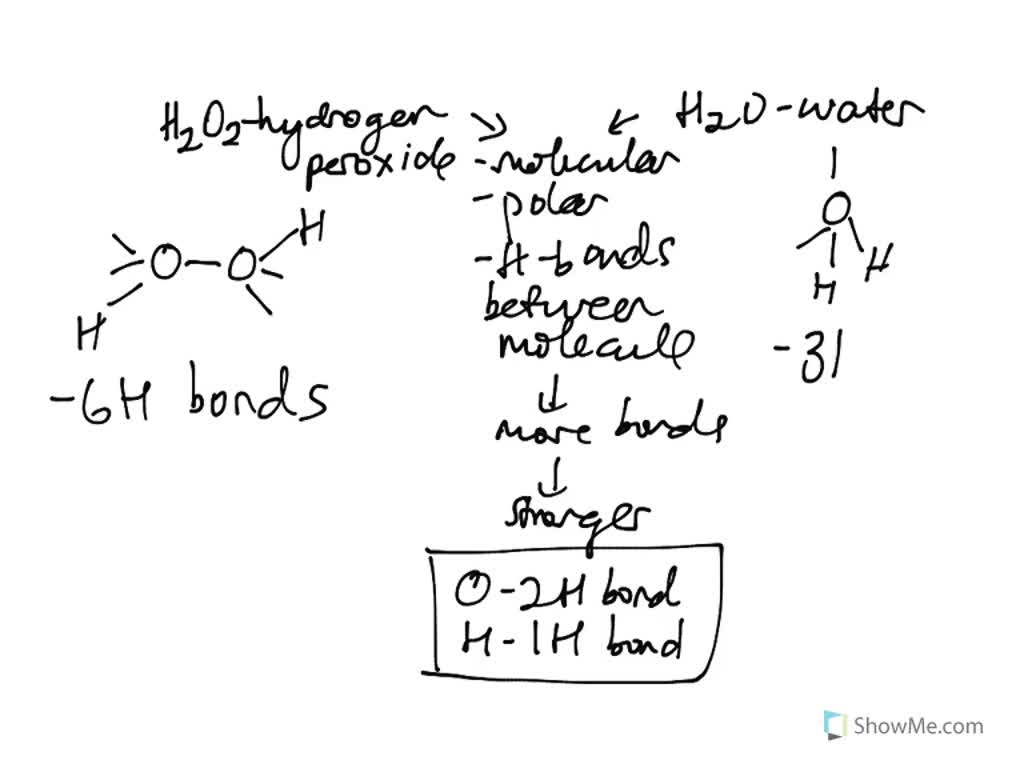 H2O2-hydrogen
peroxide
H
O-O
H
-6H bonds
-molecular
-polar
-H-bonds
between
molecule
more bonds
stronger
O-2H bond
H-1H bond
H2O-water
O
H
H
-3I
ShowMe.com